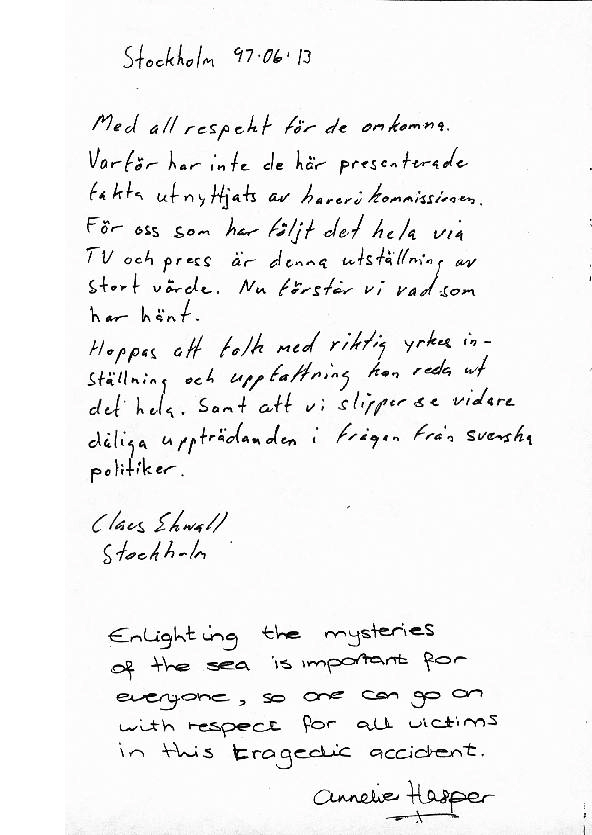 Stockholm 97.06.13
Med all respekt för de omkomna.
Varför har inte de här presenterade
fakta utnyttjats av haverikommissionen.
För oss som har följt det hela via
TV och press är denna utställning av
stort värde. Nu förstår vi vad som
har hänt.
Hoppas att folk med riktig yrkes in-
ställning och uppfattning kan reda ut
det hela. Samt att vi slipper se vidare
dåliga uppträdanden i frågan från svenska
politiker.
Claes Ekwall
Stockholm
Enlighting the mysteries
of the sea is important for
everyone, so one can go on
with respect for all victims
in this tragedic accident.
Annelie Hasper